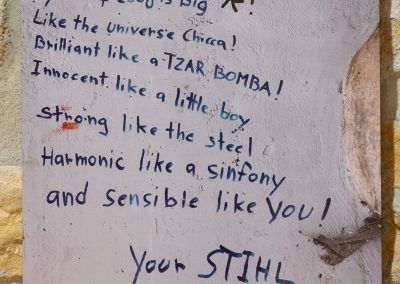 is Big
Like the universe Chicca!
Brilliant like a TZAR BOMBA!
Innocent like a little boy
strong like the steel
Harmonic like a sinfony
and sensible like YOU!
your STIHL